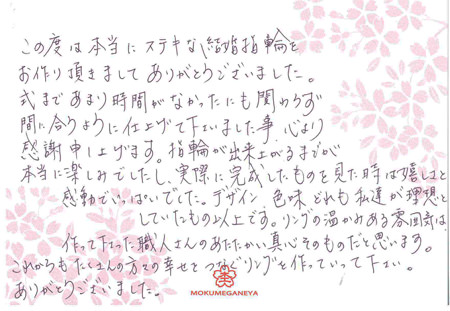 この度は本当にステキな結婚指輪を
お作り頂きましてありがとうございました。
式まであまり時間がなかったにも関わらず
間に合うように仕上げて下さいました事、心より
感謝申し上げます。指輪が出来上がるまでが
本当に楽しみでしたし、実際に完成したものを見た時は嬉しさと
感動でいっぱいでした。デザイン 色味 どれも私達が理想と
していたもの以上です。リングの温かみある雰囲気は、
作って下さった職人さんのあたたかい真心そのものだと思います。
これからもたくさんの方々の幸せをつなぐリングを作っていって下さい。
ありがとうございました。
MOKUMEGANEYA